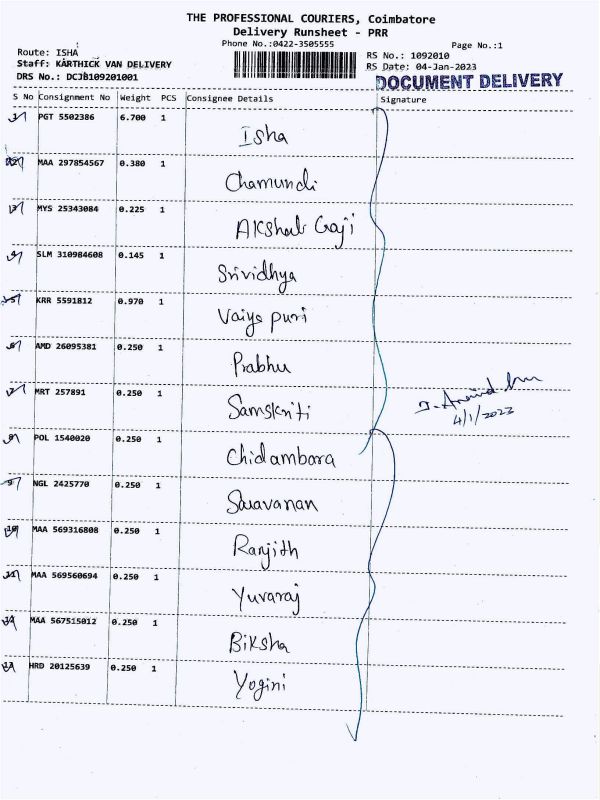 THE PROFESSIONAL COURIERS, Coimbatore
Delivery Runsheet - PRR
Phone No.:0422-3505555 Page No.:1
Route: ISHA RS No.: 1092010
Staff: KARTHICK VAN DELIVERY RS Date: 04-Jan-2023
DRS No.: DCJB109201001 DOCUMENT DELIVERY
S No Consignment No Weight PCS Consignee Details Signature
PGT 5502386 6.700 1 Isha
MAA 297854567 0.380 1 Chamundi
MYS 25343084 0.225 1 Akshab Gaji
SLM 310984608 0.145 1 Srividhya
KRR 5591812 0.970 1 Vaiya puri
AMD 26095381 0.250 1 Prabhu
MRT 257891 0.250 1 Samskriti
4/1/2023
POL 1540020 0.250 1 Chidambara
NGL 2425770 0.250 1 Saravanan
MAA 569316808 0.250 1 Ranjith
MAA 569560694 0.250 1 Yuvaraj
MAA 567515012 0.250 1 Biksha
HRD 20125639 0.250 1 Yogini